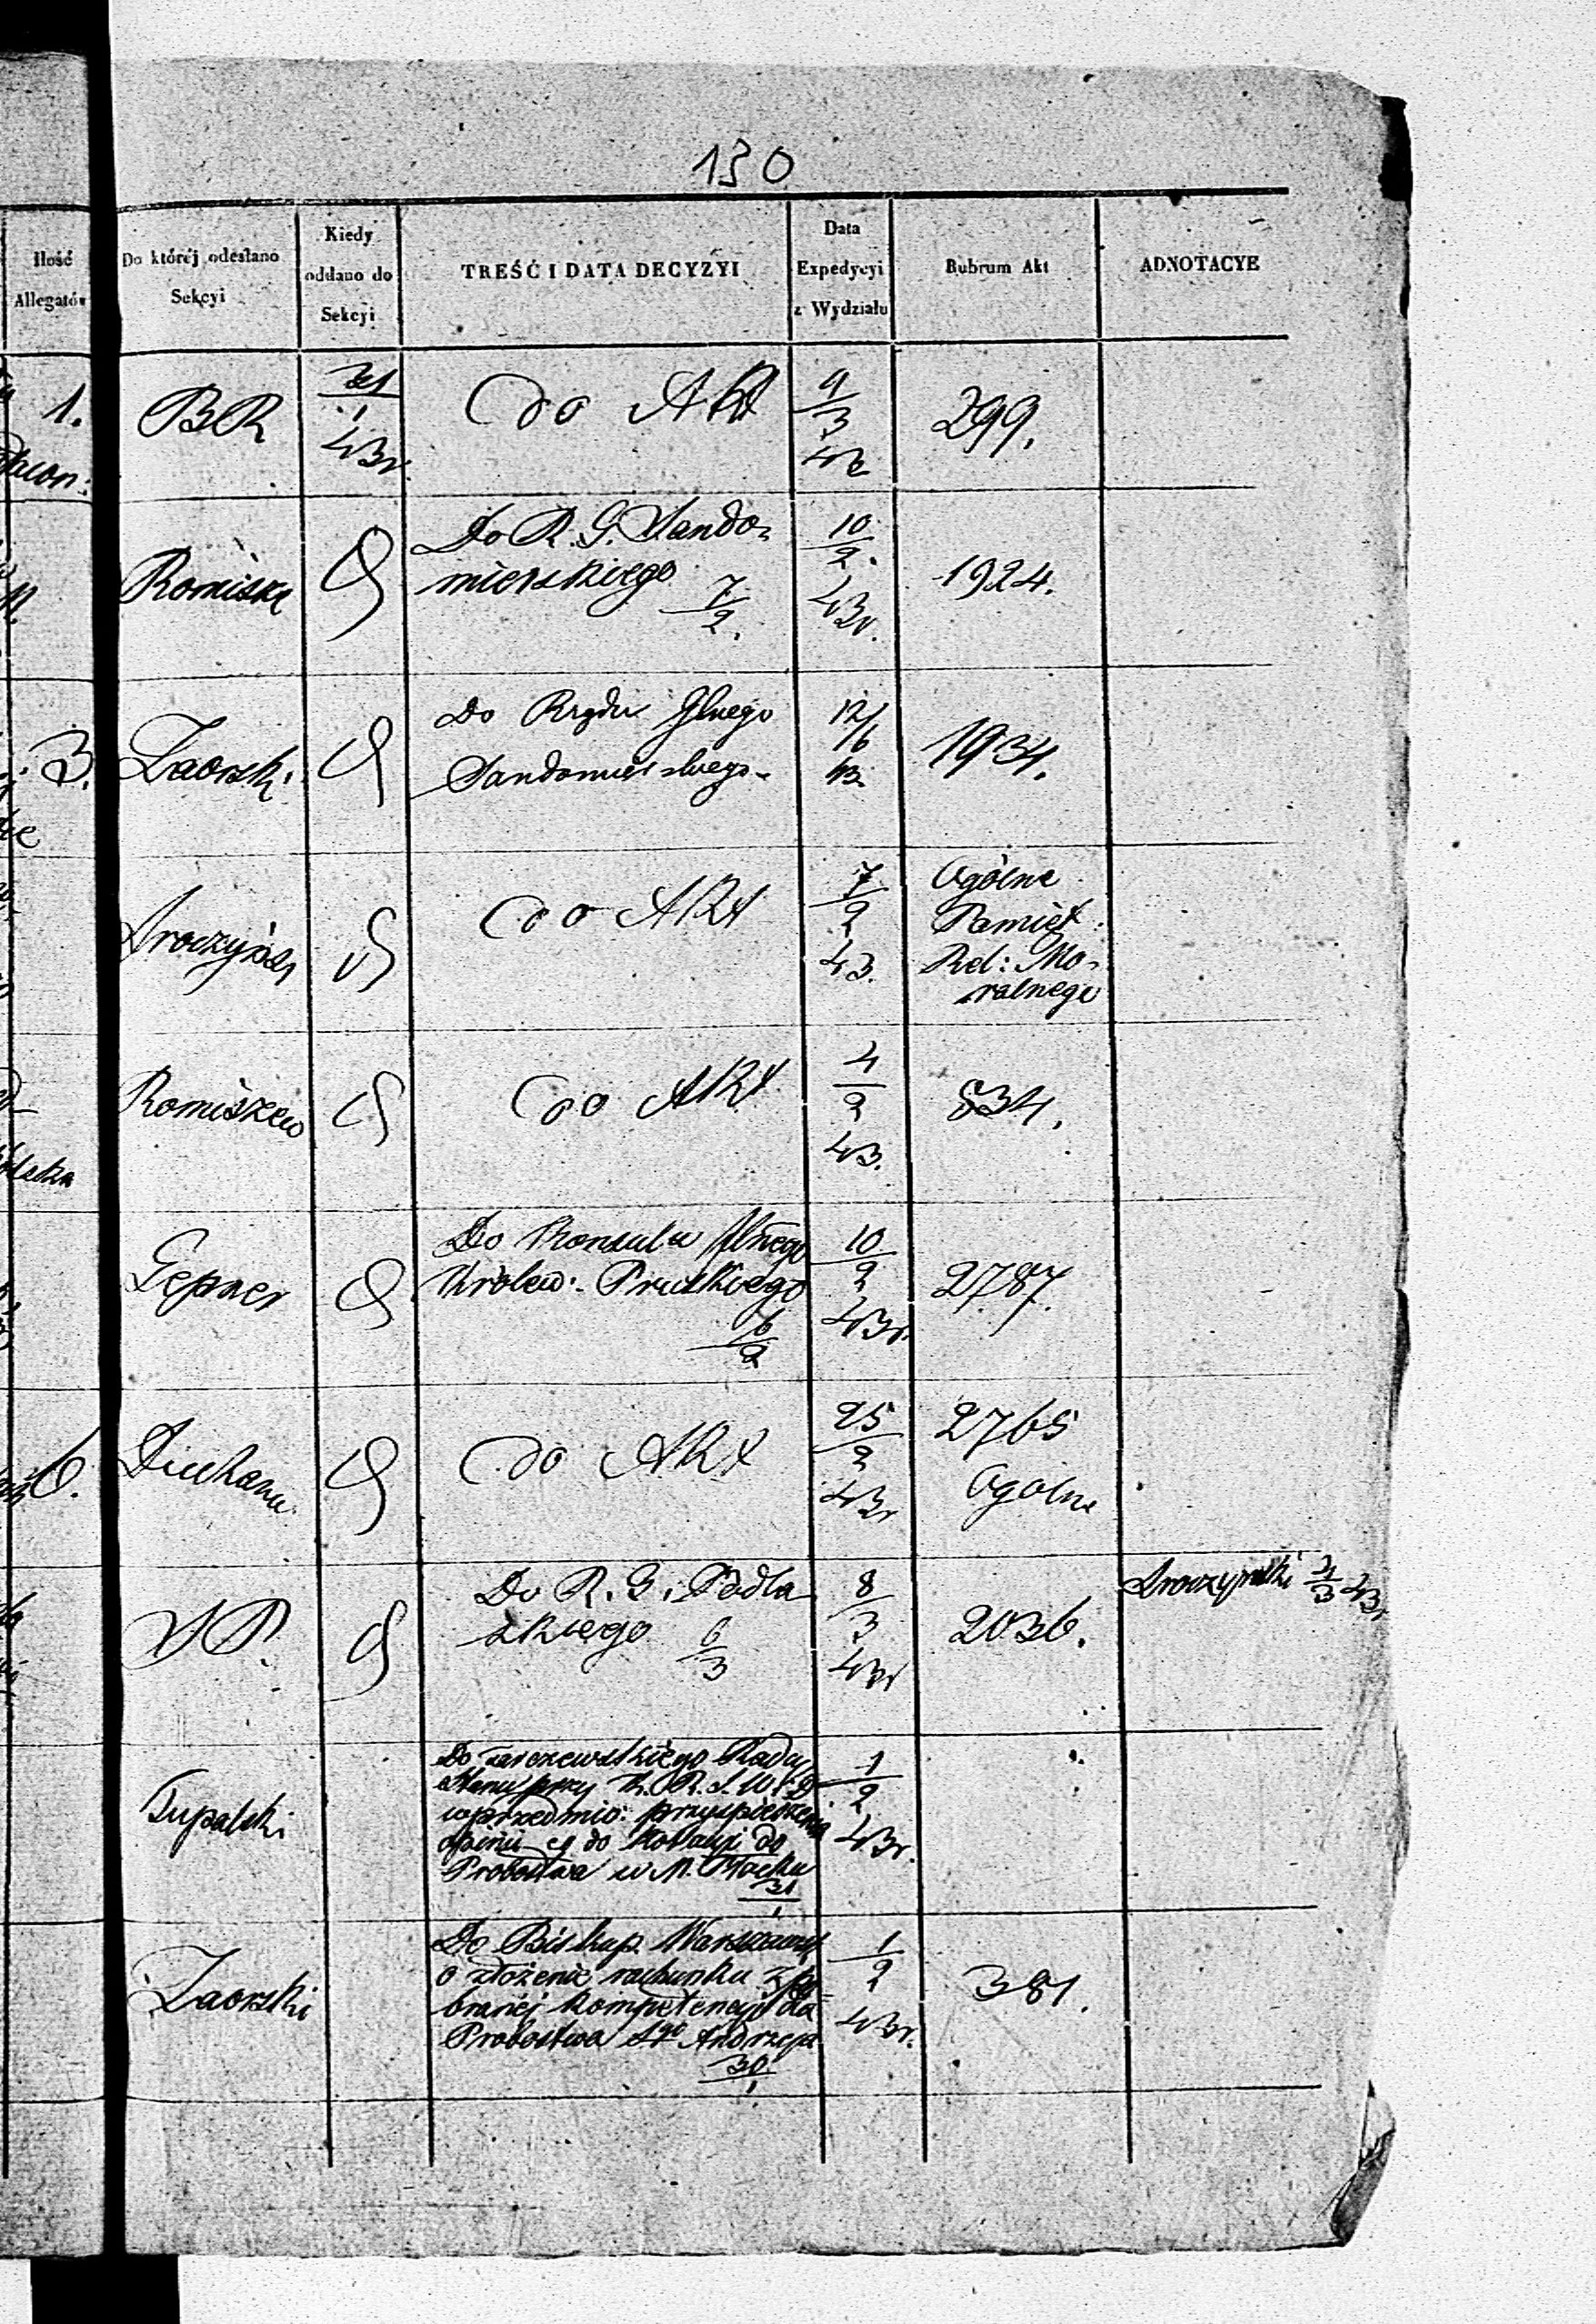 130
Ilość
Allegatów
Do której odesłano
Sekcyi
Kiedy
oddano do
Sekcyi
TREŚĆ I DATA DECYZYI
Data
Expedycyi
z Wydziału
Rubrum Akt
ADNOTACYE
1.
BR
31
1
43r.
do Akt
9
3
43
299.
Romisze
Do R. G. Sando-
mierskiego
7
2.
10
2.
43r.
1924.
3.
Zaorski
Do Rządu Glnego
Sandomierskiego
12/6
43.
1934.
Sroczyńs
do Akt
7
2
43.
Ogólne
Pamięt.
Rel: Mo-
ralnego
Romiszew
do Akt
4
2
43.
834.
Gepner
Do Konsula Glnego
Królew: Pruskiego
6
2
10
2
43r.
2787.
6.
do Akt
25
2
43r
2765
Ogólne
SP.
Do R. G. Podla
skiego
6
3
8
3
43r
2036.
Sroczyński
3
43r
Tupalski
Do Radcy
Stanu przy K. R. S. W. i D.
w przedmio: przyspieszenia
opinii co do Kollacyi do
Probostwa w M. Płocku
31
1
1
2
43r.
Zaorski
Do Biskup. Warszawsk
o złożenie rachunku z po-
branéj kompetencyi dla
Probostwa Sgo Andrzeja
30
1
1
2
43r.
381.